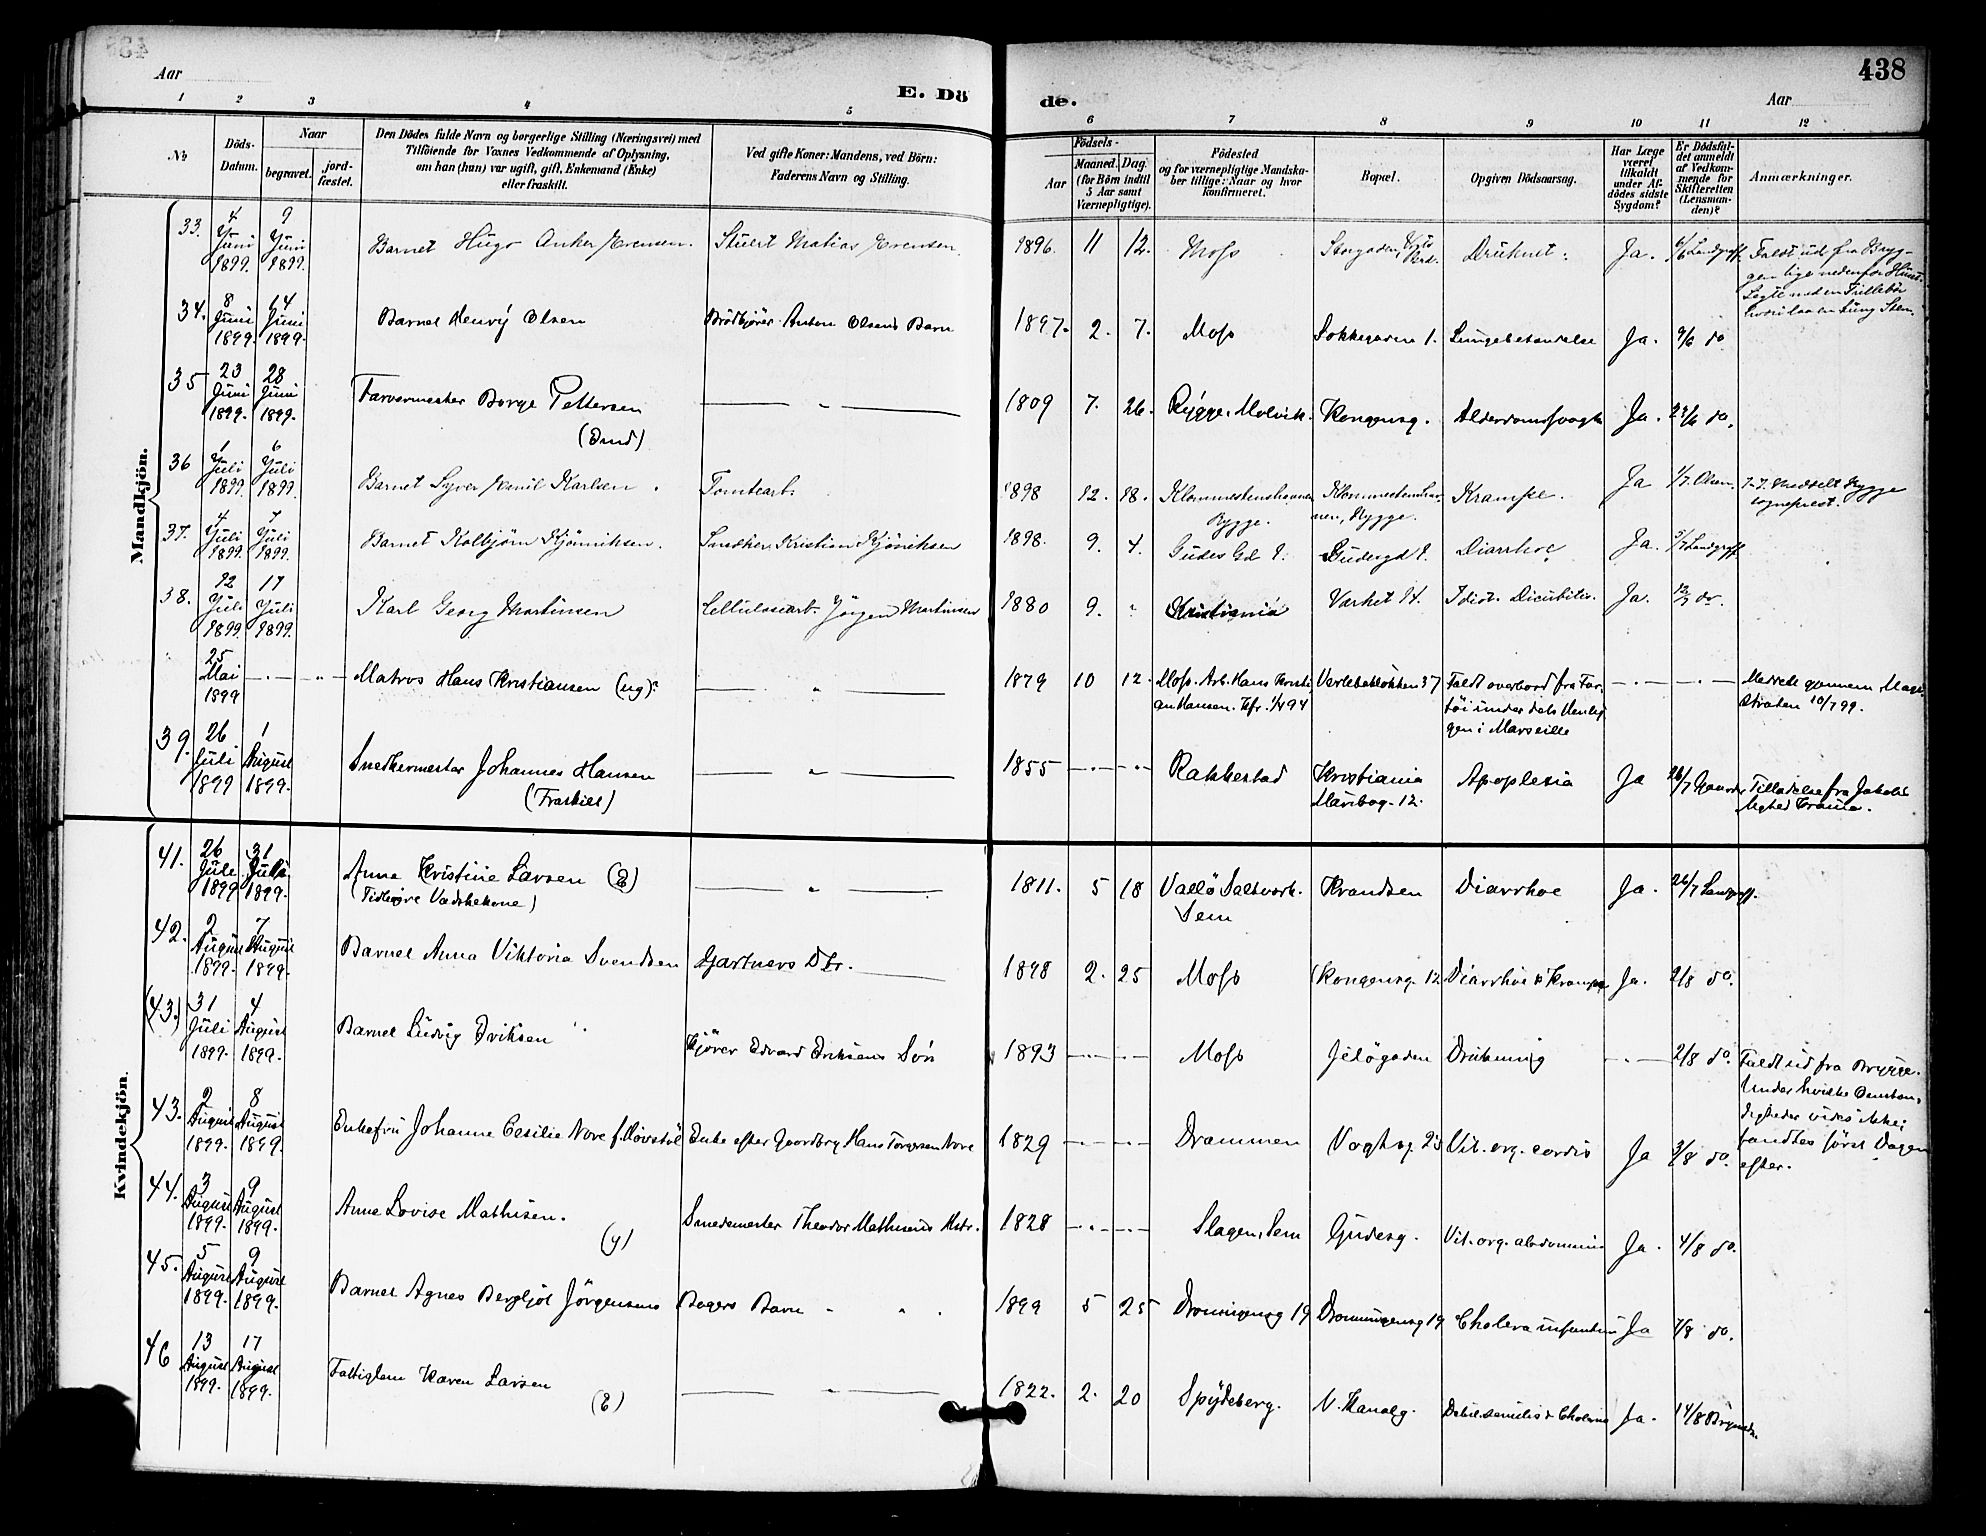 438
Aar
Aar
E. Dö
de.
1 2 3 4 5 6 7 8 9 10 11 12
No
Döds-Datum.
Naar
begravet.
jord-fæstet.
Den Dödes fulde Navn og borgerlige Stilling (Næringsvei) med
Tilföiende for Voxnes Vedkommende af Oplysning,
om han (hun) var ugift, gift, Enkemand (Enke)
eller fraskilt.
Ved gifte Koner: Mandens, ved Börn:
Faderens Navn og Stilling.
Födsels-
Aar
Maaned.
Dag.
(for Börn indtil
5 Aar samt
Værnepligtige).
Födested
og for værnepligtige Mandska-
ber tillige: Naar og hvor
konfirmeret.
Bopæl.
Opgiven Dödsaarsag.
Har Læge
været
tilkaldt
under Af-
dödes sidste
Sygdom?
Er Dödsfal-
det anmeldt
af Vedkom-
mende for
Skifteretten
(Lensman-
den)?
Anmærkninger.
Mandkjön.
33. 4 Juni 1899. 9 Juni 1899. Barnet Hugo Anker 1896. 11 12. Moss Storgaden Druknet. Ja. 6/6 Landgraff. Faldt ud fra Bryg-
34. 8 Juni 1899. 14 Juni 1899. Barnet Henry Olsen Brödkjörer Anton Olsens Barn 1897. 2. 7. Moss 1. Lungebetændelse Ja. 9/6 do.
35 23 Juni 1899. 28 Juni 1899. Farvermester Borge Pettersen (Enkd) — " — 1809 7. 26. Rygge. Kongensg. Ja. do.
36 1 Juli 1899. 6 Juli 1899. Barnet Syver Emil Karlsen. Tomtearb. 1898 12. 18. Rygge. Krampe. Ja 1/7. Olsen. 7-7. Meddelt Rygge
sogneprest.
37. 4 Juli 1899. 7 Juli 1899. Barnet Kolbjörn Kjönniksen. Snedker Kristian Kjöniksen 1898. 9. 4. Gudes Gd 9. Gudesgd 9. Diarrhoe Ja. 5/7 Landgraff.
38. 12 Juli 1899. 17 Juli 1899. Karl Georg Martinsen Cellulosearb. Jörgen Martinsen 1880 9. " Kristiania Varket 14. Idiot. Ja. 12/7 do.
25 Mai 1899 — " — Matros Hans Kristiansen (ug). — " — 1879 10 12. Moss. Arb. Hans Kristi-
an Hansen. Kfr. 1/4 94 Varlebakløkken 37 Faldt overbord fra Far-
töi under dets Henlig-
gen i Marseille — " — Meddelt gjennem Magi-
straten 10/7 99.
39. 26 Juli 1899 1 August 1899. Snedkermester Johannes Hansen
(Fraskilt) — " — 1855 — " — Rakkestad Kristiania
Maribog. 12. Apoplexia Ja 26/7 Tilladelse fra Jakobs
Menighed Krania.
Kvindekjön.
41. 26 Juli 1899 31 Juli 1899. Anna Kristine Larsen (E)
(Tidligere Vadskekone) — " — 1811. 5 18 Vallö Saltverk.
Sem Krandsen Diarrhoe Ja. 26/7 Landgraff.
42. 2 August 1899. 7 August 1899. Barnet Anna Viktoria Svendsen Gartners Dtr. 1898 2. 25 Moss Kongensg. 12 Diarrhoe & Krampe Ja. 2/8 do.
(43.) 31 Juli 1899. 4 August 1899. Barnet Ludvig Eriksen Kjörer Edvard Eriksens Sön 1893 — " — Moss Jelögaden Drukning — " — 2/8 do. Faldt ud fra Brygge.
Under hvilke Omstæn-
digheder vides ikke;
fandtes först Dagen
efter.
43. 2 August 1899. 8 August 1899. Enkefru Johanne Cecilie Nore f. Enke efter Hans Torgersen Nore 1829 — " — Drammen Vogtsg. 25 Vit. org. cordis Ja 3/8 do.
44. 3 August 1899. 9 August 1899. Anne Lovise Mathisen. (g) Smedemester Theodor Mathisens Hstr. 1828 — " — Slagen, Sem Gudesg. Vit. org. abdominis Ja. 4/8 do.
45. 5 August 1899. 9 August 1899. Barnet Agnes Bergljot Jörgensens Bagers Barn " " 1899 5 25 Dronningensg 19 Dronningensg 19 Cholera infantum Ja 7/8 do.
46 13 August 1899. 17 August 1899. Fattiglem Karen Larsen (E) — " — 1822. 2. 20 Spydeberg. N. Kanalg. Ja. 14/8